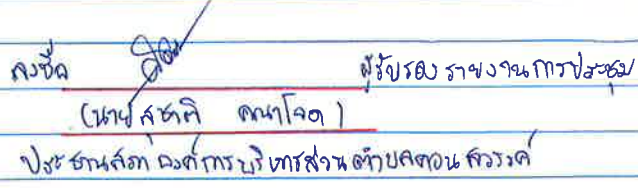 ลงชื่อ ผู้รับรองรายงานการประชุม
(นายสุชาติ คณาโจด)
ประธานสภาองค์การบริหารส่วนตำบลดอนสวรรค์